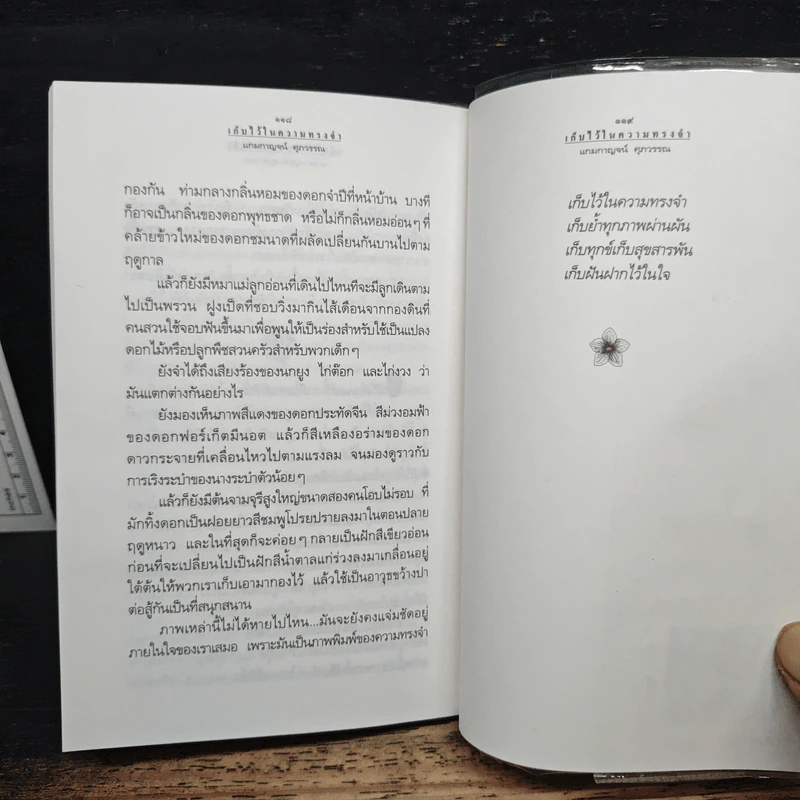 ๑๑๘
เก็บไว้ในความทรงจำ
แกมกาญจน์ ศุภวรรณ
กองกัน ท่ามกลางกลิ่นหอมของดอกจำปีที่หน้าบ้าน บางที
ก็อาจเป็นกลิ่นของดอกพุทธชาด หรือไม่ก็กลิ่นหอมอ่อนๆ ที่
คล้ายข้าวใหม่ของดอกชมนาดที่ผลัดเปลี่ยนกันบานไปตาม
ฤดูกาล
แล้วก็ยังมีหมาแม่ลูกอ่อนที่เดินไปไหนทีจะมีลูกเดินตาม
ไปเป็นพรวน ฝูงเป็ดที่ชอบวิ่งมากินไส้เดือนจากกองดินที่
คนสวนใช้จอบฟันขึ้นมาเพื่อพูนให้เป็นร่องสำหรับใช้เป็นแปลง
ดอกไม้หรือปลูกพืชสวนครัวสำหรับพวกเด็กๆ
ยังจำได้ถึงเสียงร้องของนกยูง ไก่ต๊อก และไก่งวง ว่า
มันแตกต่างกันอย่างไร
ยังมองเห็นภาพสีแดงของดอกประทัดจีน สีม่วงอมฟ้า
ของดอกฟอร์เก็ตมีนอต แล้วก็สีเหลืองอร่ามของดอก
ดาวกระจายที่เคลื่อนไหวไปตามแรงลม จนมองดูราวกับ
การเริงระบำของนางระบำตัวน้อยๆ
แล้วก็ยังมีต้นจามจุรีสูงใหญ่ขนาดสองคนโอบไม่รอบ ที่
มักทิ้งดอกเป็นฝอยยาวสีชมพูโปรยปรายลงมาในตอนปลาย
ฤดูหนาว และในที่สุดก็จะค่อยๆ กลายเป็นฝักสีเขียวอ่อน
ก่อนที่จะเปลี่ยนไปเป็นฝักสีน้ำตาลแก่ร่วงลงมาเกลื่อนอยู่
ใต้ต้นให้พวกเราเก็บเอามากองไว้ แล้วใช้เป็นอาวุธขว้างปา
ต่อสู้กันเป็นที่สนุกสนาน
ภาพเหล่านี้ไม่ได้หายไปไหน...มันจะยังคงแจ่มชัดอยู่
ภายในใจของเราเสมอ เพราะมันเป็นภาพพิมพ์ของความทรงจำ
๑๑๙
เก็บไว้ในความทรงจำ
แกมกาญจน์ ศุภวรรณ
เก็บไว้ในความทรงจำ
เก็บย้ำทุกภาพผ่านผัน
เก็บทุกข์เก็บสุขสารพัน
เก็บฝันฝากไว้ในใจ